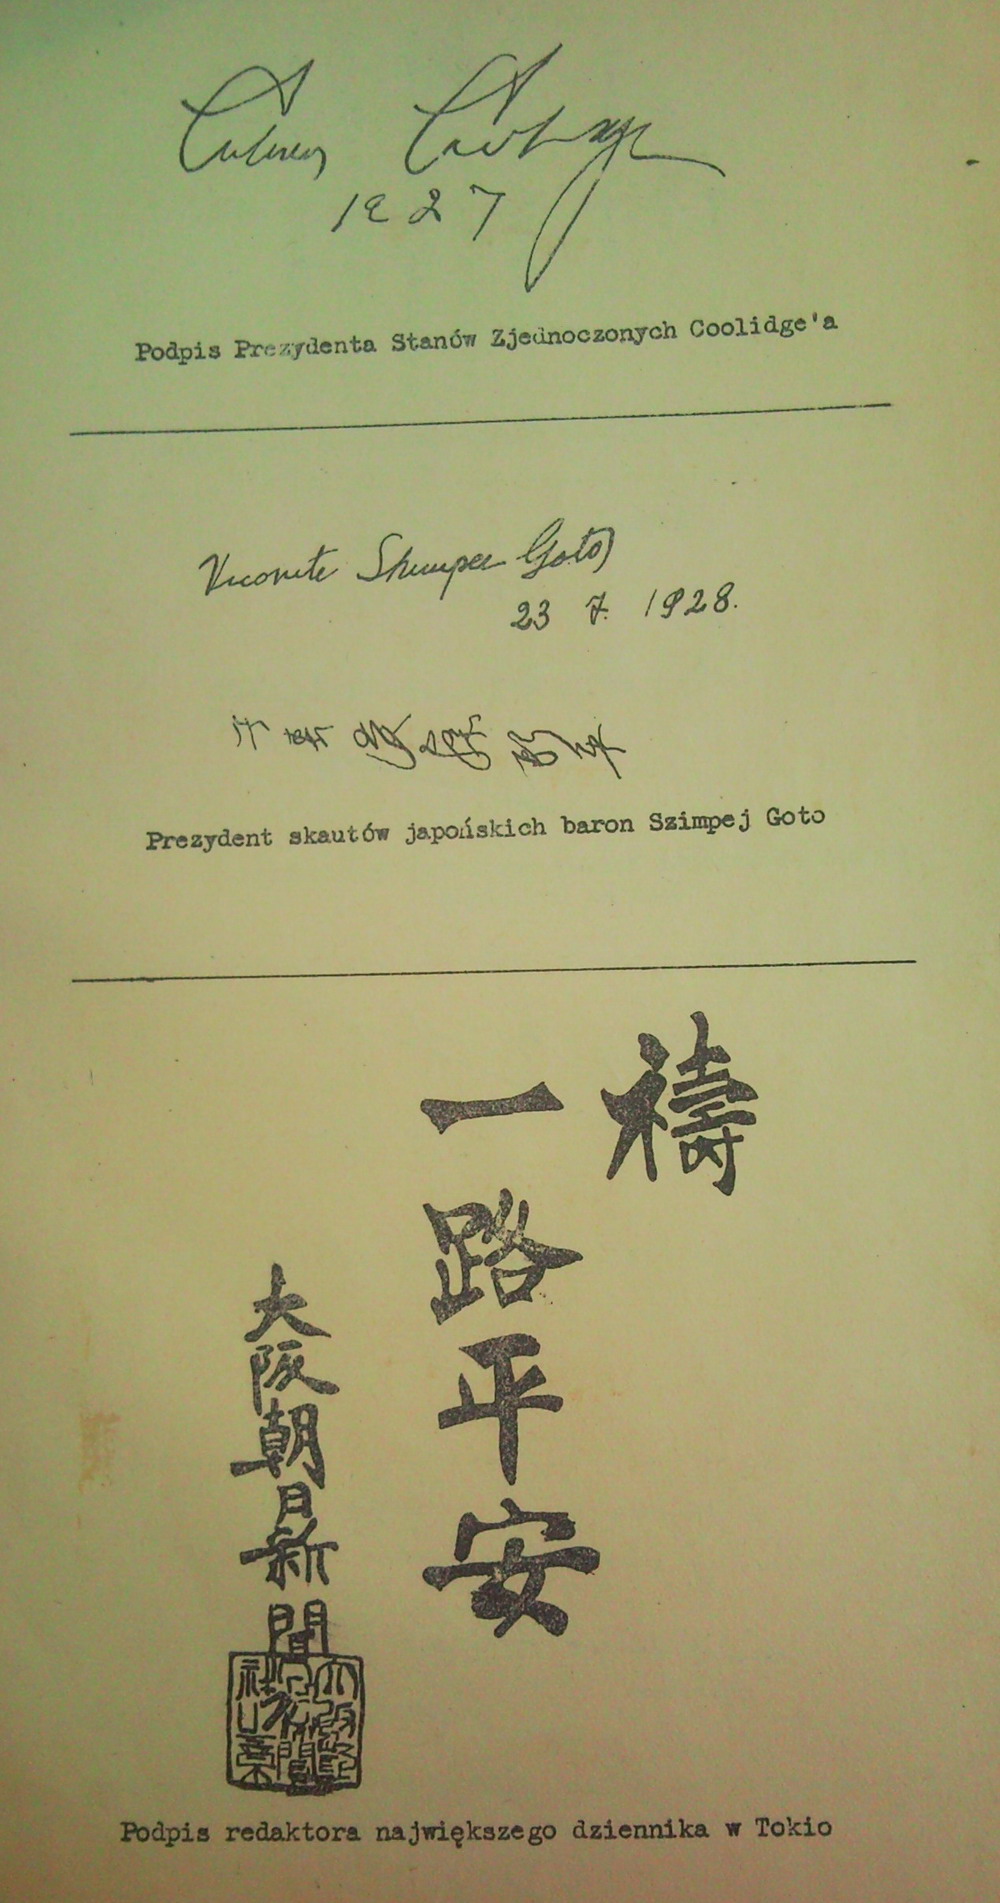 Calvin Coolidge
1927
Podpis Prezydenta Stanów Zjednoczonych Coolidge'a
Vicomte Shimpei Goto
23 7. 1928.
Prezydent skautów japońskich baron Szimpej Goto
禱
一路平安
大阪朝日新聞
Podpis redaktora największego dziennika w Tokio